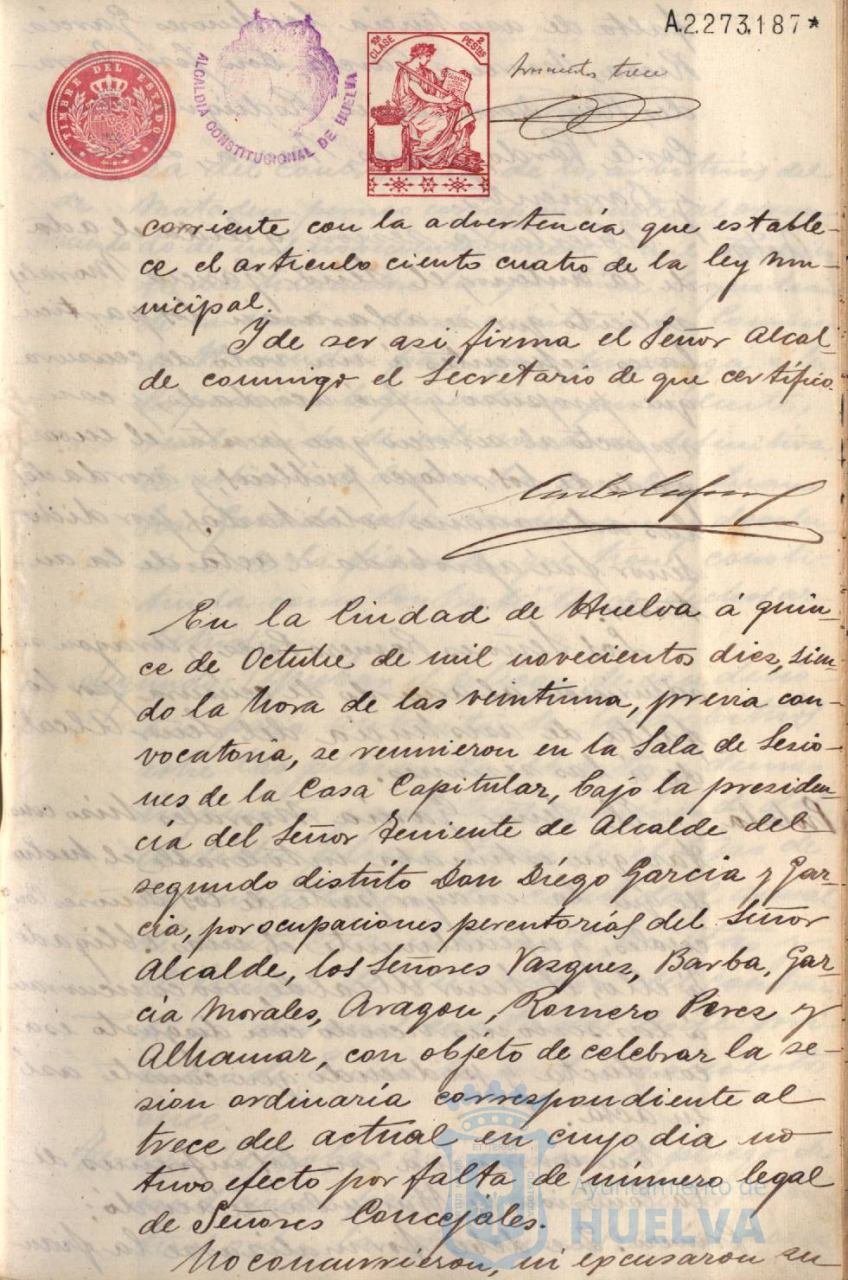 A.2.273.187*
TIMBRE DEL ESTADO
ALCALDIA CONSTITUCIONAL DE HUELVA
CLASE
2 PESTAS
trece
corriente con la advertencia que estable-
ce el articulo ciento cuatro de la ley mu-
nicipal.
Y de ser asi firma el Señor Alcal-
de conmigo el Secretario de que certifico.
En la Ciudad de Huelva á quin-
ce de Octubre de mil novecientos diez, sien-
do la hora de las veintiuna, previa con-
vocatoria, se reunieron en la Sala de Sesio-
nes de la Casa Capitular, bajo la presiden-
cia del Señor Teniente de Alcalde del
segundo distrito Don Diego Garcia y Gar-
cia, por ocupaciones perentorias del Señor
Alcalde, los Señores Vazquez, Barba, Gar-
cía Morales, Aragon, Romero Perez y
Alhamar, con objeto de celebrar la se-
sion ordinaria correspondiente al
trece del actual en cuyo dia no
tuvo efecto por falta de número legal
de Señores Concejales.
No concurrieron, ni excusaron su
Ayuntamiento de
HUELVA